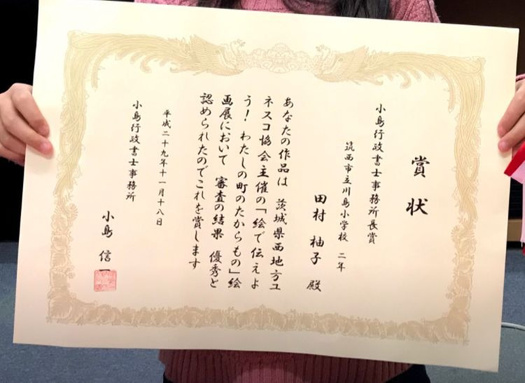 賞状
小島行政書士事務所長賞
筑西市立川島小学校 二年
田村 柚子 殿
あなたの作品は 茨城県西地方ユ
ネスコ協会主催の「絵で伝えよ
う！わたしの町のたからもの」絵
画展において 審査の結果 優秀と
認められたのでこれを賞します
平成二十九年十一月十八日
小島行政書士事務所
小島 信一